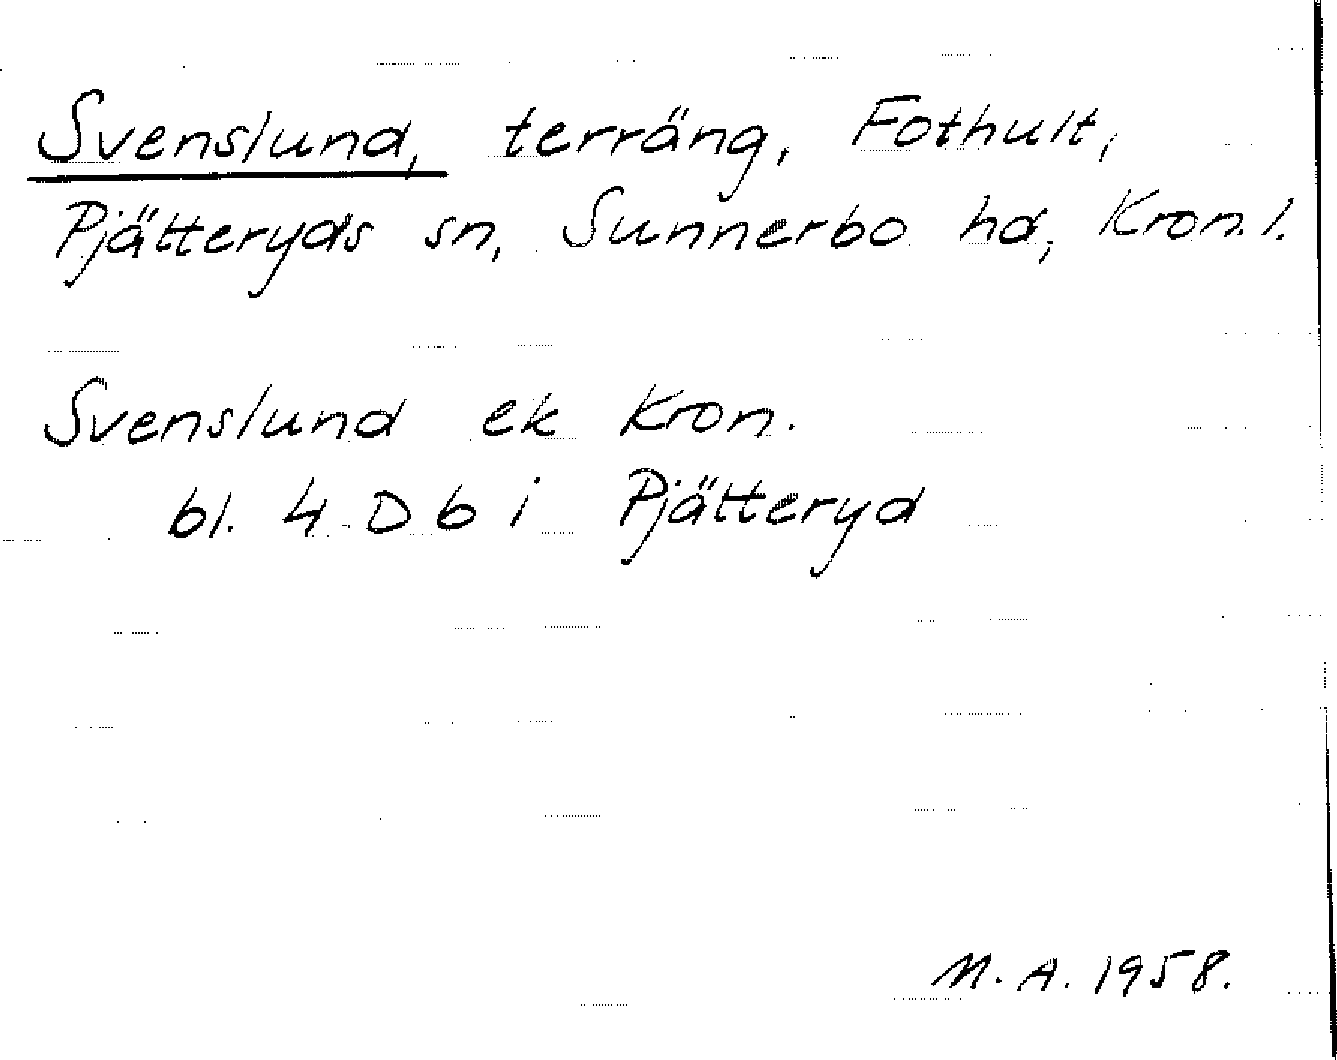 Svenslund, terräng, Fothult,
Pjätteryds sn, Sunnerbo hd, Kron. l.
Svenslund ek Kron.
bl. 4 D b i Pjätteryd
M. A. 1958.